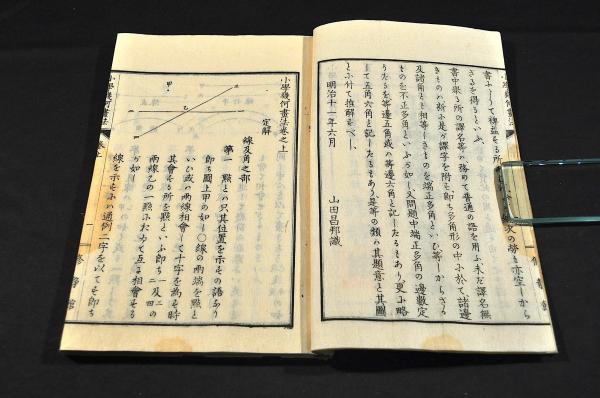 書ふして裨益する所
ざるを得るといふ
書中擧る所の譯名等ハ務めて普通の語を用ふ未だ譯名無
きものハ新ふ是が譯字を附す即ち多角形の中ふ於て諸邊
及諸角とも相等しきものを端正多角といひ等しからざる
ものを不正多角といふが如し又問題中端正多角の邊數定
りたるを等邊五角或ハ等邊六角と記したるもあり更ふ略
して五角六角と記したるもあり是等の類ハ其題意と其圖
とふ付て推解すべし
明治十一年六月
山田昌邦識
小學幾何畫法卷之上
定解
線及角之部
第一 點とハ只其位置を示すの語あり
即ち圖上甲の如し〇線の兩端を點と
いひ或ハ兩線相會して十字を為す時
其會する所を點といふ即ち一及二三四の
兩線乙の一點ふたゐて互ふ相會する
が如し
線を示すふハ通例二字を以てす即ち
甲
乙
小學幾何畫法
修靜館